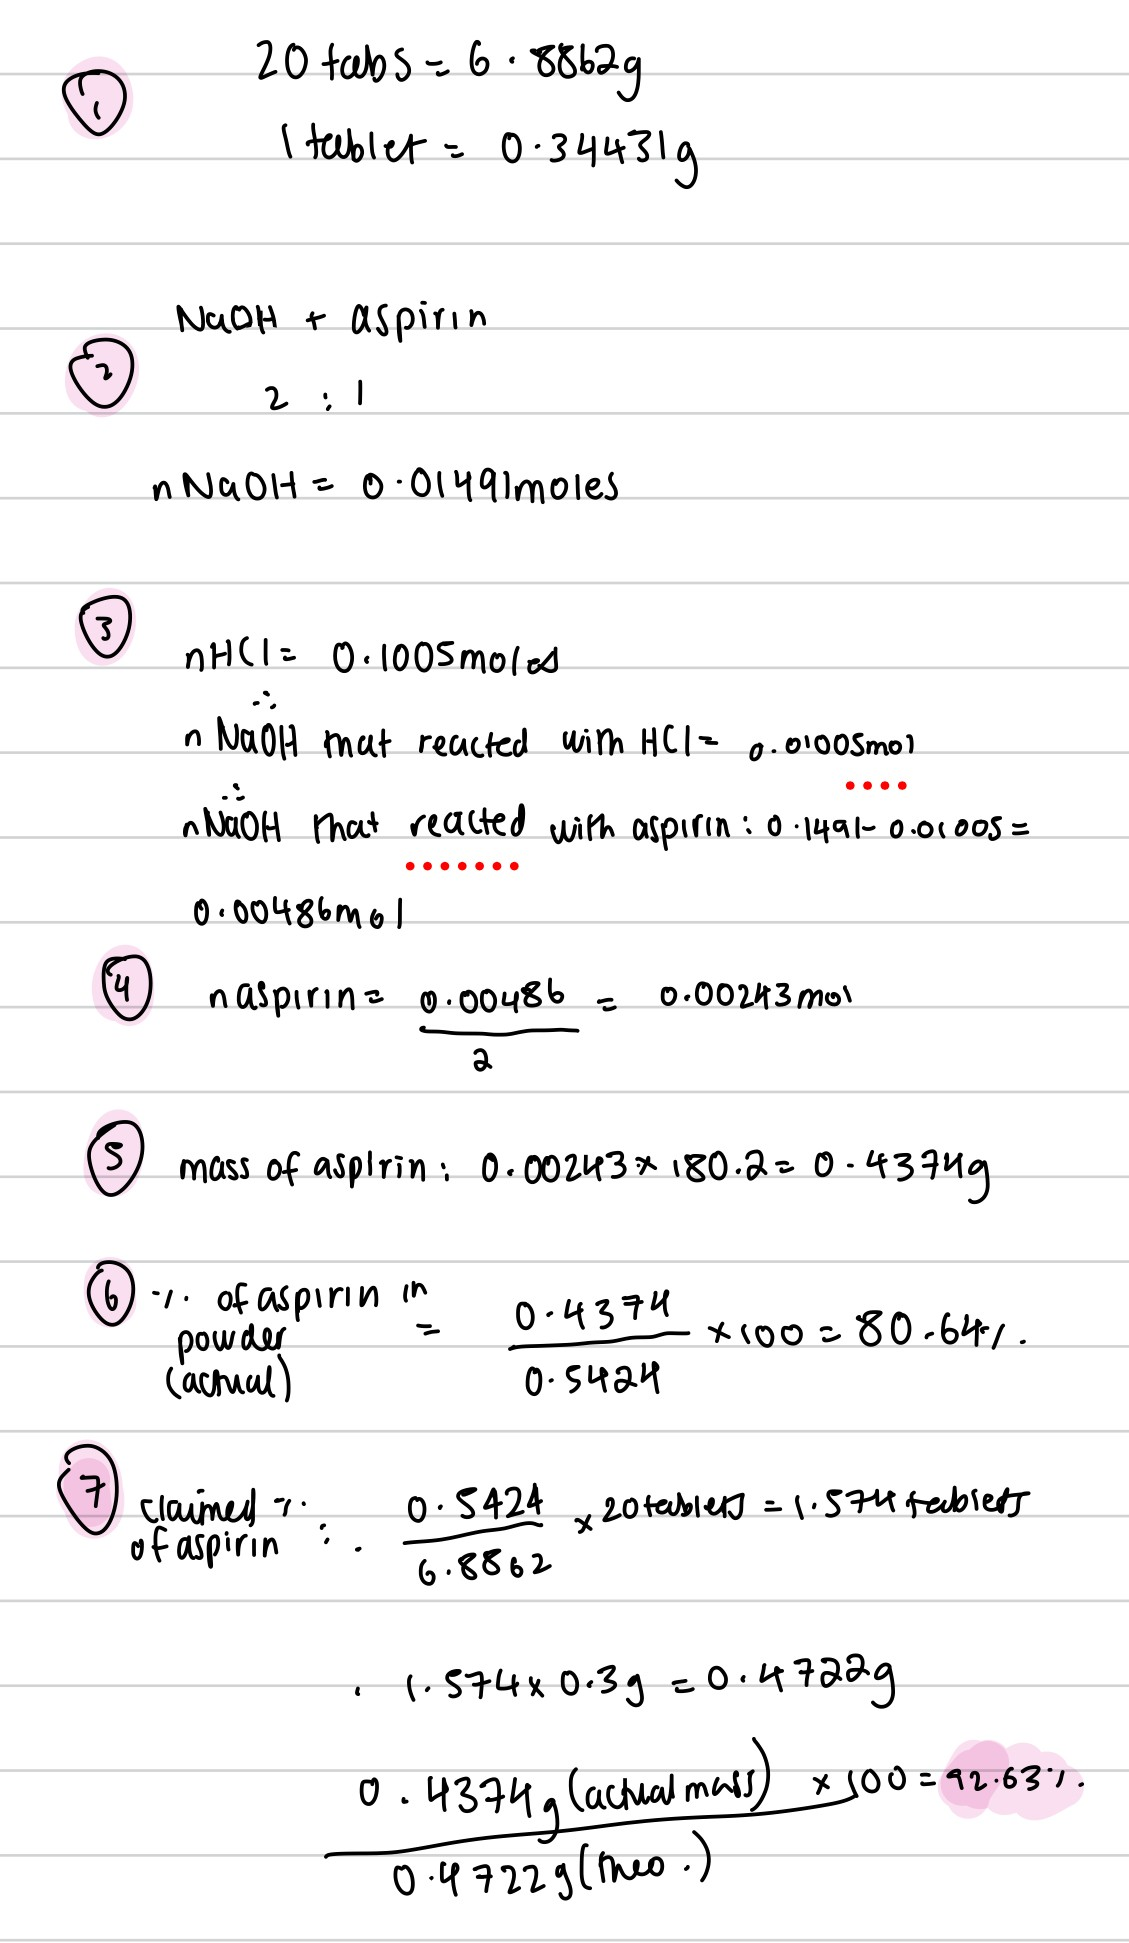 20 tabs = 6.8862g
1
1 tablet = 0.34431g
NaOH + aspirin
2
2 : 1
nNaOH = 0.01491moles
3
nHCl = 0.1005moles
∴
nNaOH that reacted with HCl = 0.01005mol
∴
nNaOH that reacted with aspirin : 0.1491 - 0.01005 =
0.00486mol
4
n aspirin = 0.00486 = 0.00243mol
2
5 mass of aspirin : 0.00243 × 180.2 = 0.4374g
6 % of aspirin in
powder
(actual)
= 0.4374 × 100 = 80.64%.
0.5424
7 claimed %
of aspirin :. 0.5424 × 20 tablets = 1.574 tablets
6.8862
. 1.574 × 0.3g = 0.4722g
0.4374g (actual mass) × 100 = 92.63%.
0.4722g (theo.)